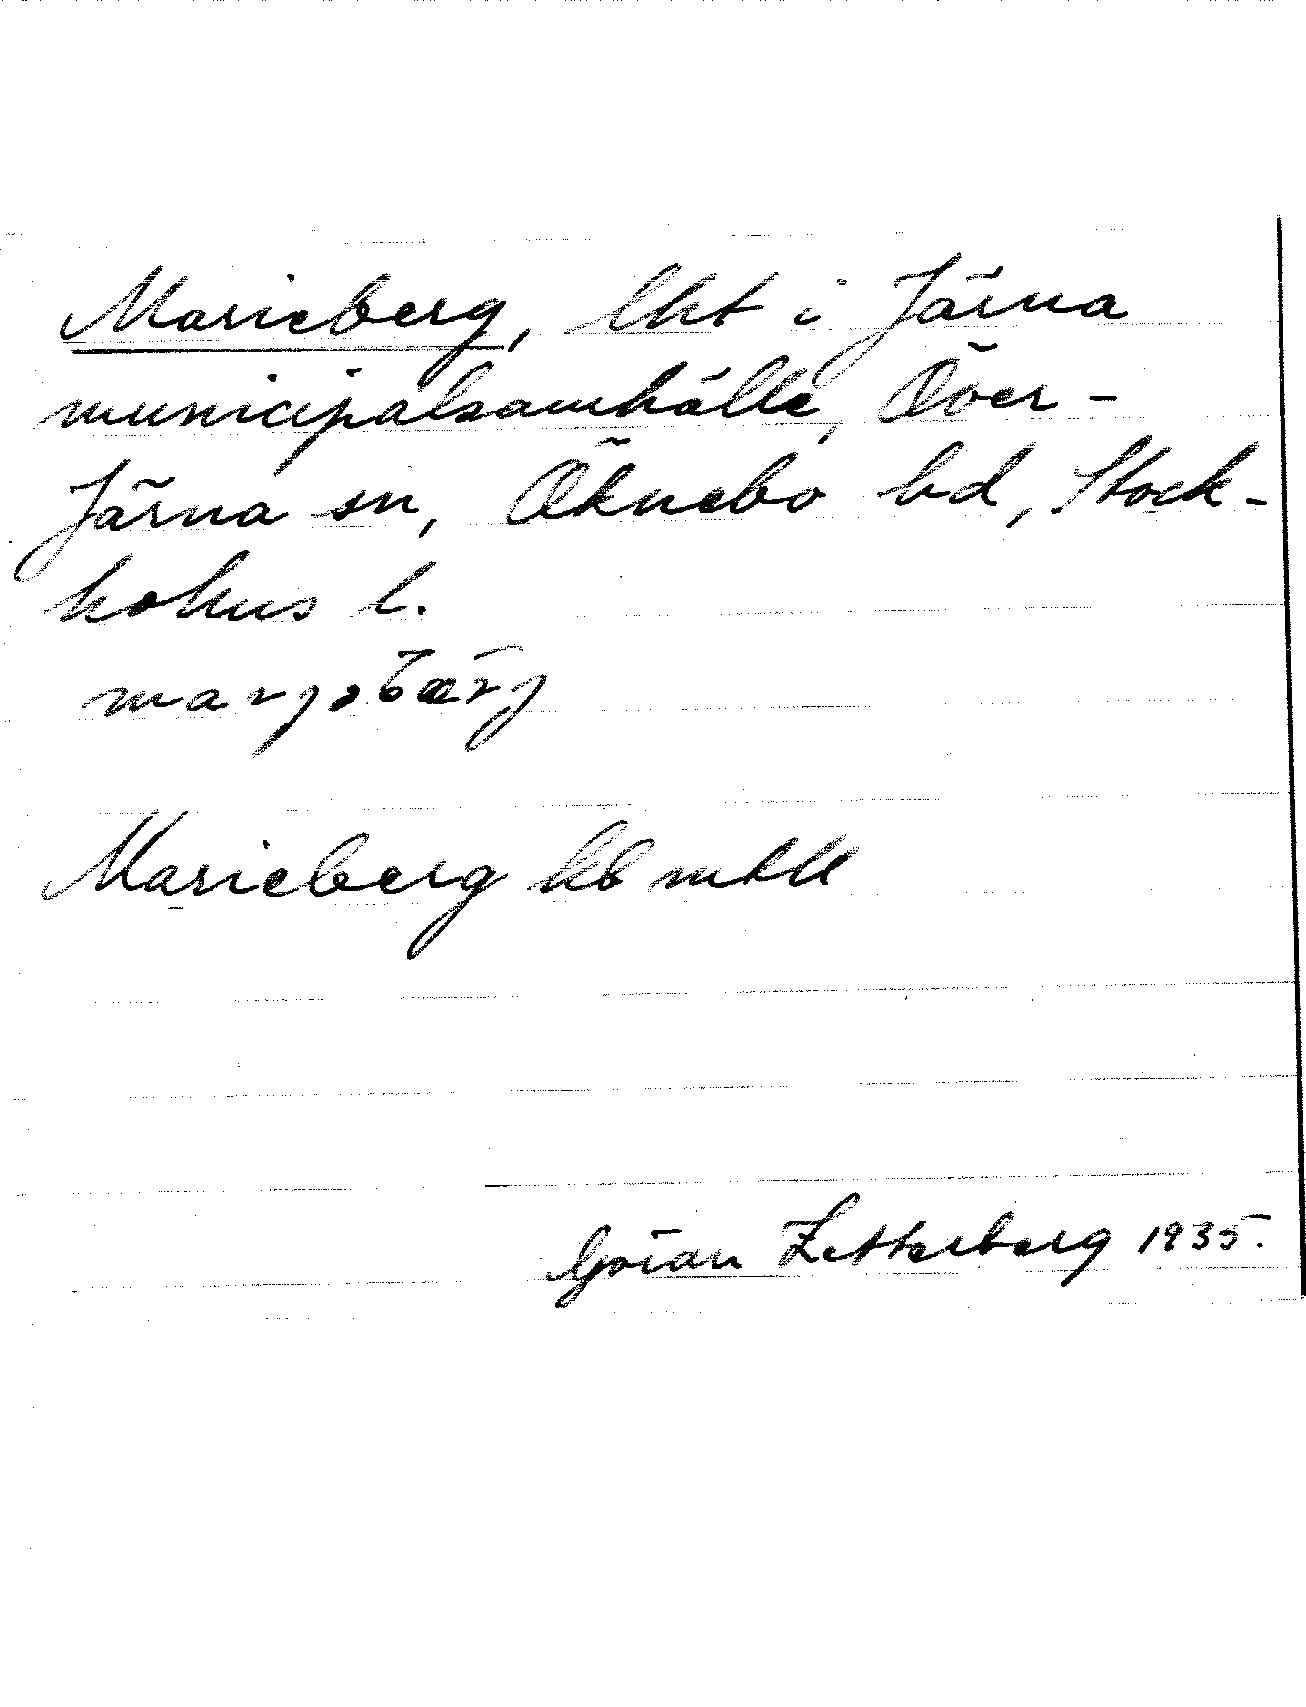 Marieberg, lht i Järna
municipalsamhälle, Över-
Järna sn, Öknebo hd, Stock-
holms l.
Marieberg kb mtbl
Göran Zetterberg 1935.